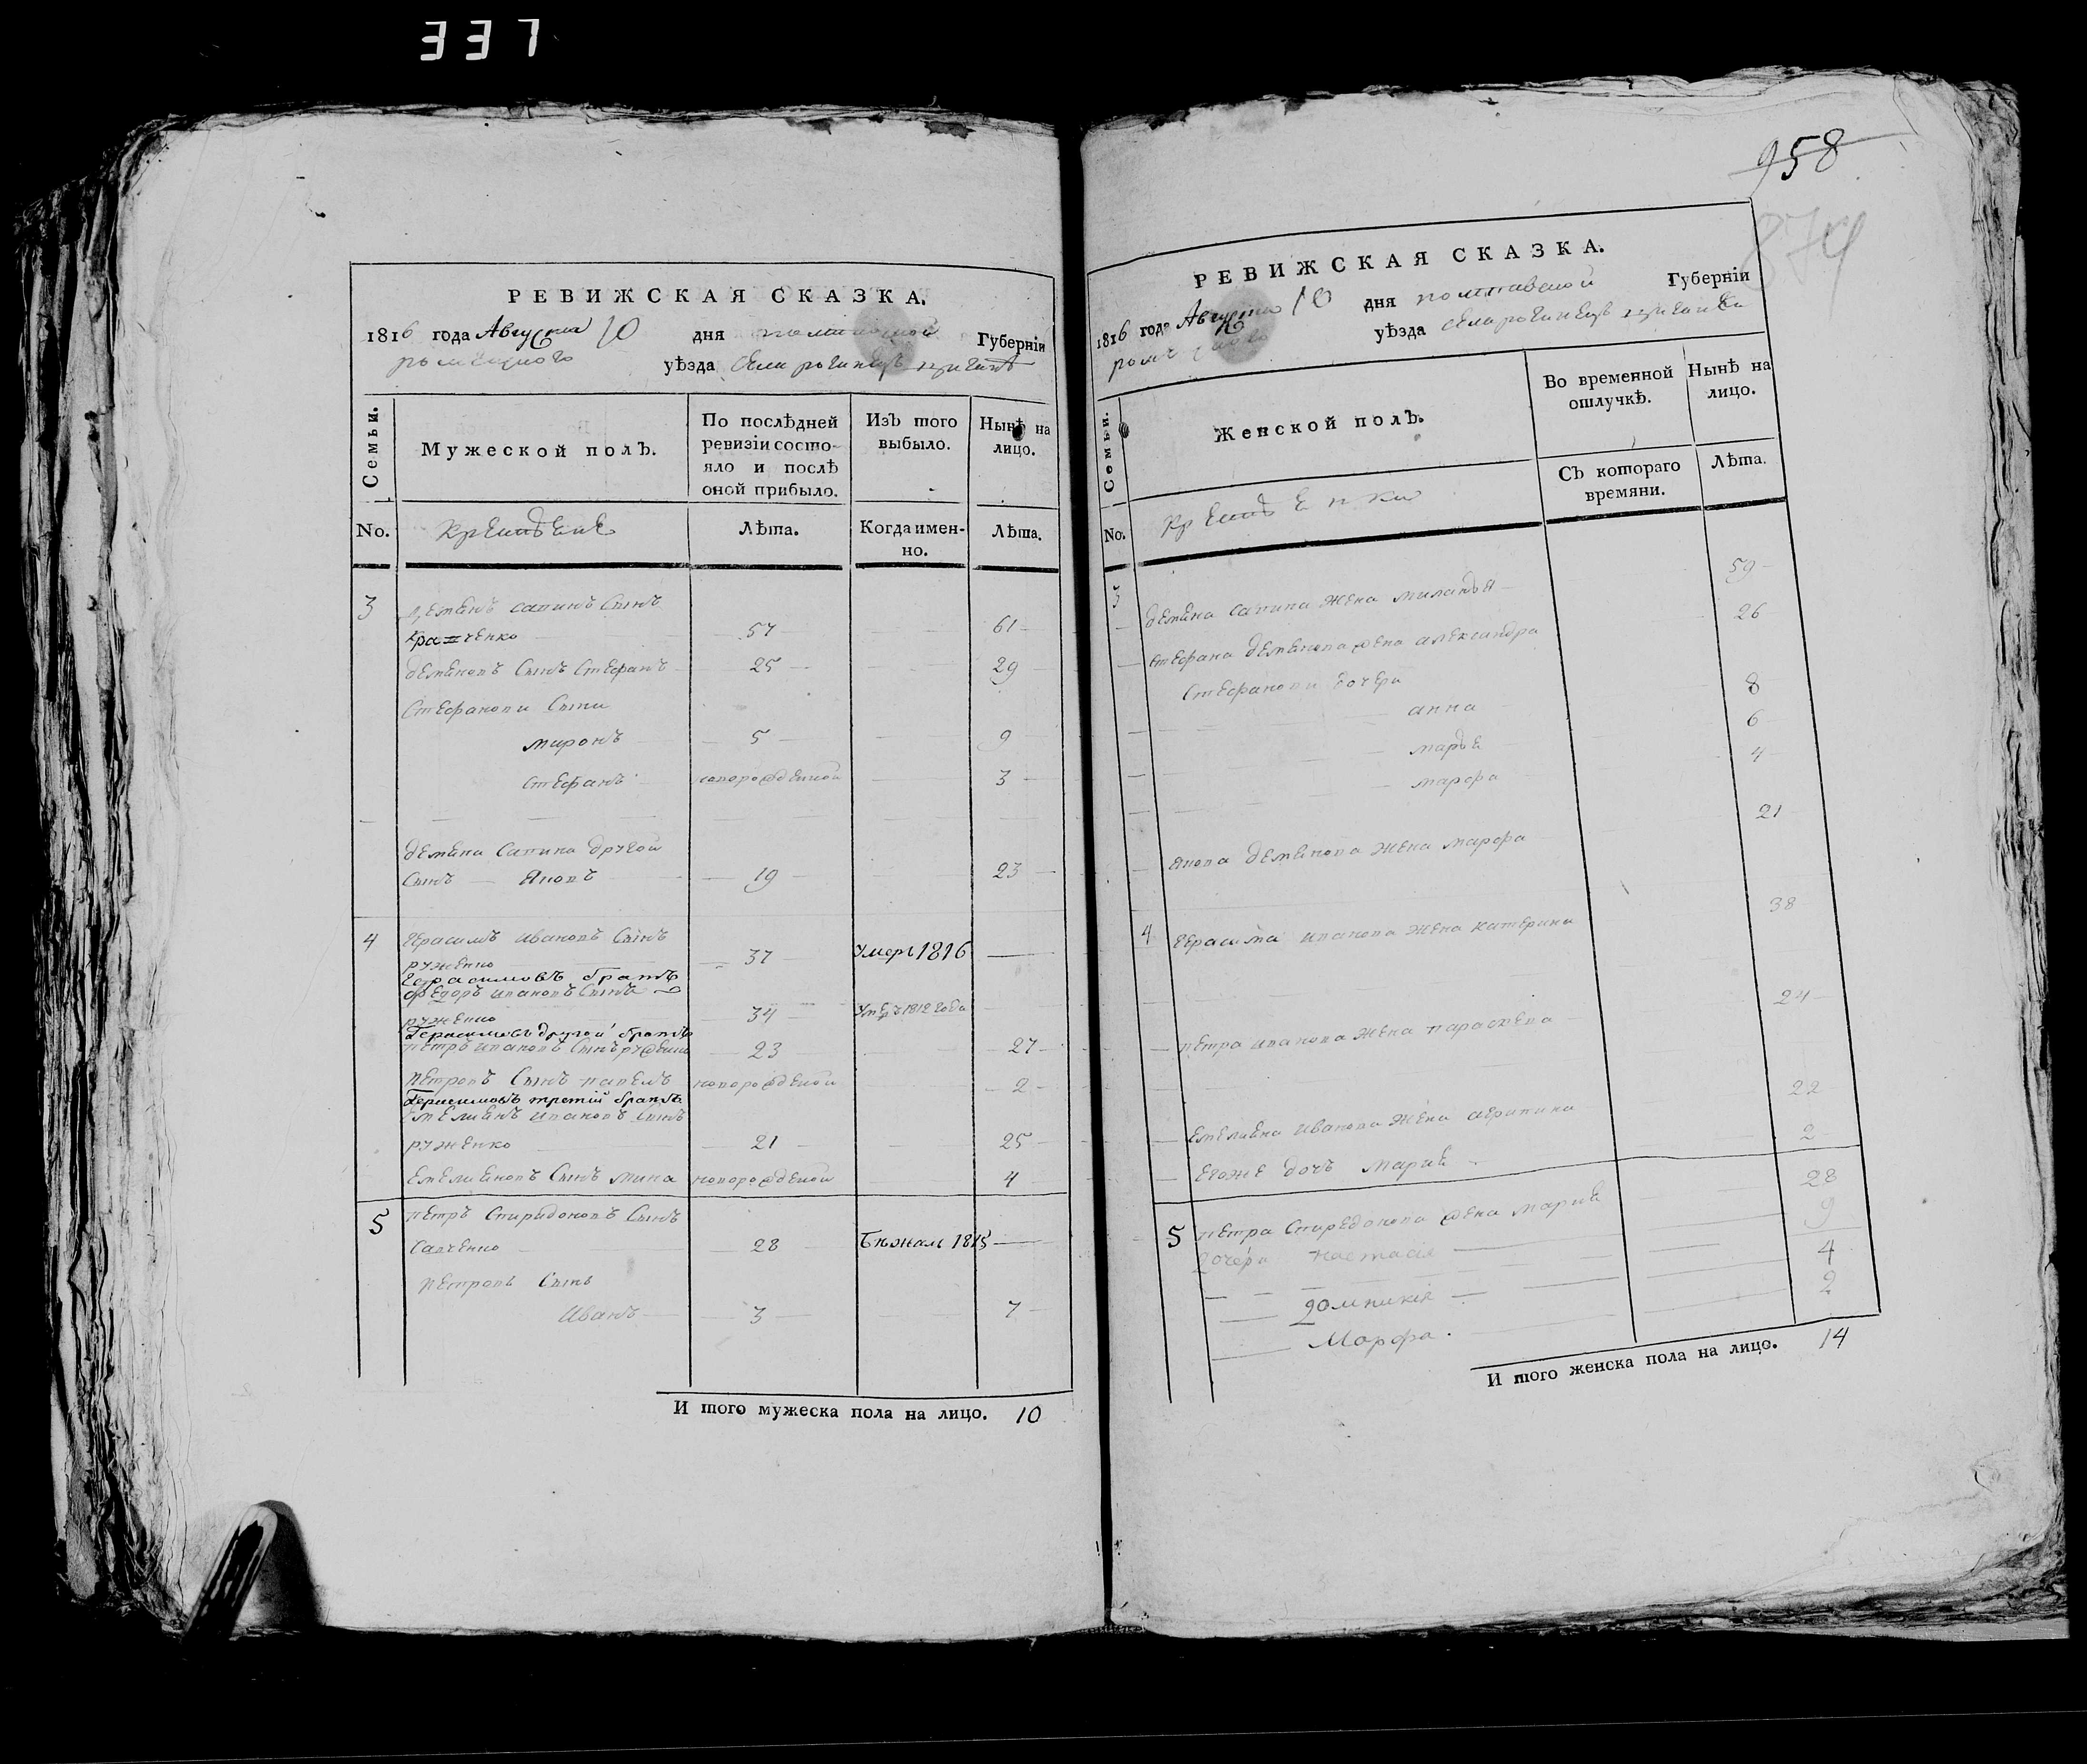 337
РЕВИЖСКАЯ СКАЗКА.
1816 года Августа 10 дня полтавской Губерніи
роменского уѣзда села рогинецъ
Семьи.
Мужеской полъ.
По послѣдней ревизіи состояло и послѣ оной прибыло.
Изъ того выбыло.
Нынѣ на лицо.
No.
Лѣта.
Когда именно.
Лѣта.
3 демянъ сапинъ Сынъ
57 61
демяновъ Сынъ Стефанъ 25 29
Стефанови Сыни
миронъ 5 9
Стефанъ новорожденой 3
демяна Сапина другой
Сынъ Яковъ 19 23
4 Герасимъ Ивановъ Сынъ
руженко 37 Умеръ 1816
Герасимовъ братъ
Федоръ ивановъ Сынъ
руженко 34 Умеръ 1812 года
Герасимовъ другой братъ
петръ ивановъ Сынъ руженко 23 27
петровъ Сынъ павелъ новорожденой 2
Герасимовъ третій братъ
Емелианъ ивановъ Сынъ
руженко 21 25
Емелиановъ Сынъ мина новорожденой 4
5 петръ Спиридоновъ Сынъ
Савченко 28 Бѣжалъ 1815
петровъ Сынъ
Иванъ 3 7
И того мужеска пола на лицо. 10
958
874
РЕВИЖСКАЯ СКАЗКА.
1816 года Августа 10 дня полтавской Губерніи
уѣзда села рогинецъ
Семьи.
Женской полъ.
Во временной отлучкѣ.
Нынѣ на лицо.
No.
Съ котораго времяни.
Лѣта.
3 демяна Сапина жена миланья 59
Стефана демянова жена александра 26
Стефанови дочери
анна 8
марья 6
марфа 4
Якова демянова жена марфа 21
4 Герасима иванова жена катерина 38
петра иванова жена параскева 24
Емелиана иванова жена агрипина 22
Егоже дочь Мария 2
5 петра Спиредонова жена Мария 28
дочери настасия 9
домникия 4
Марфа. 2
И того женска пола на лицо. 14